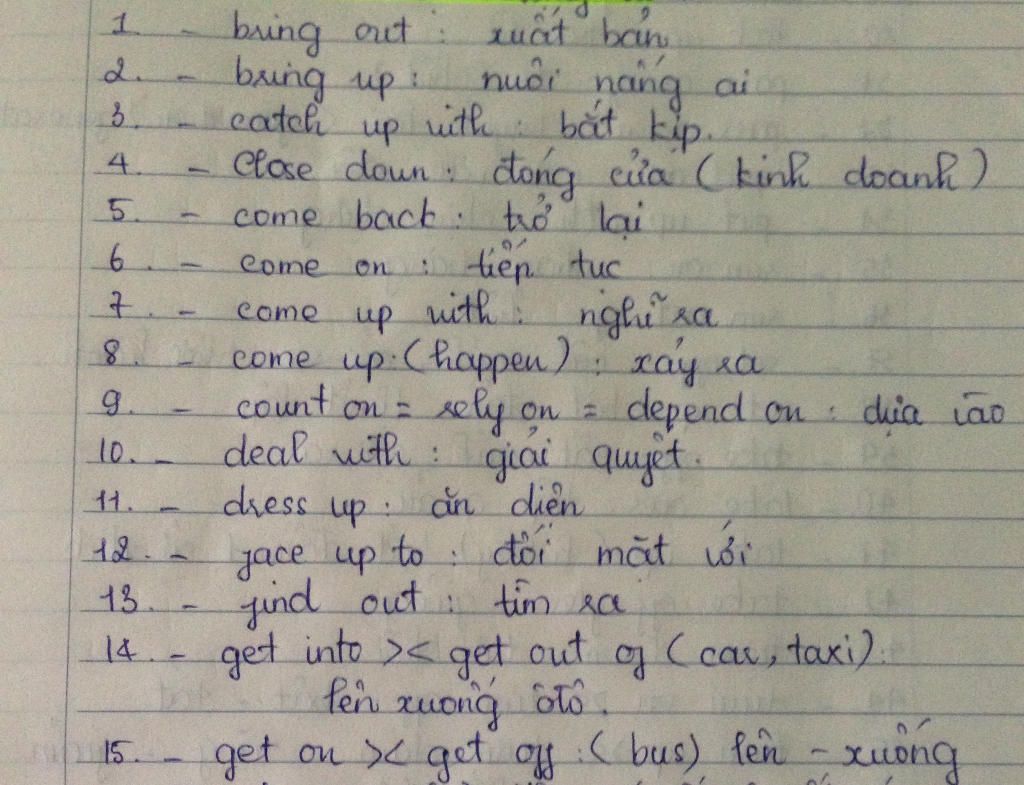 1 - bring out : xuất bản
2. - bring up : nuôi nấng ai
3. - catch up with : bắt kịp.
4. - Close down : đóng cửa ( kinh doanh )
5. - come back : trở lại
6. - come on : tiếp tục
7. - come up with : nghĩ ra
8. - come up : (happen) : xảy ra
9. - count on = rely on = depend on : dựa vào
10. - deal with : giải quyết.
11. - dress up : ăn diện
12. - face up to : đối mặt với
13. - find out : tìm ra
14. - get into >< get out of ( car, taxi) :
lên xuống ôtô.
15. - get on >< get off : ( bus) lên - xuống